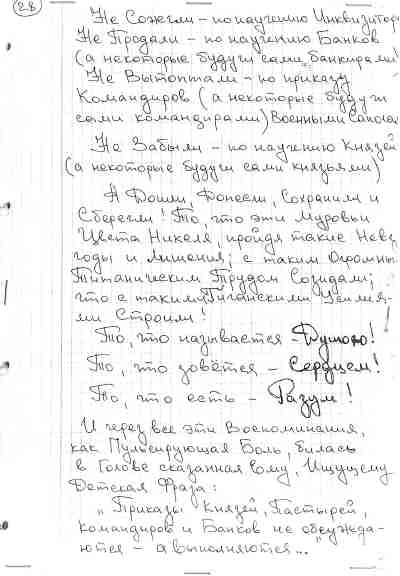 28
Не Сожгли – по научению Инквизитор
Не Продали – по научению Банков
(а некоторые будучи сами банкирами!
Не Вытоптали – по приказу
Командиров (а некоторые будучи
сами командирами) Военными Сапога
Не Забыли – по научению Князей
(а некоторые будучи сами князьями)
А Дошли, Донесли, Сохранили и
Сберегли! То, что эти Муравьи
Цвета Никеля, пройдя такие Невз
годы и Лишения; с таким Огромны
Титаническим Трудом Созидали;
что с такими Гигантскими Усилия-
ми Строили!
То, что называется – Душою!
То, что зовётся – Сердцем!
То, что есть – Разум!
И через все эти Воспоминания,
как Пульсирующая Боль, билась
в Голове сказанная ему, Ищущему
Детская Фраза:
„Приказы Князей, Пастырей,
Командиров и Банков не обсужда-
ются – а выполняются...